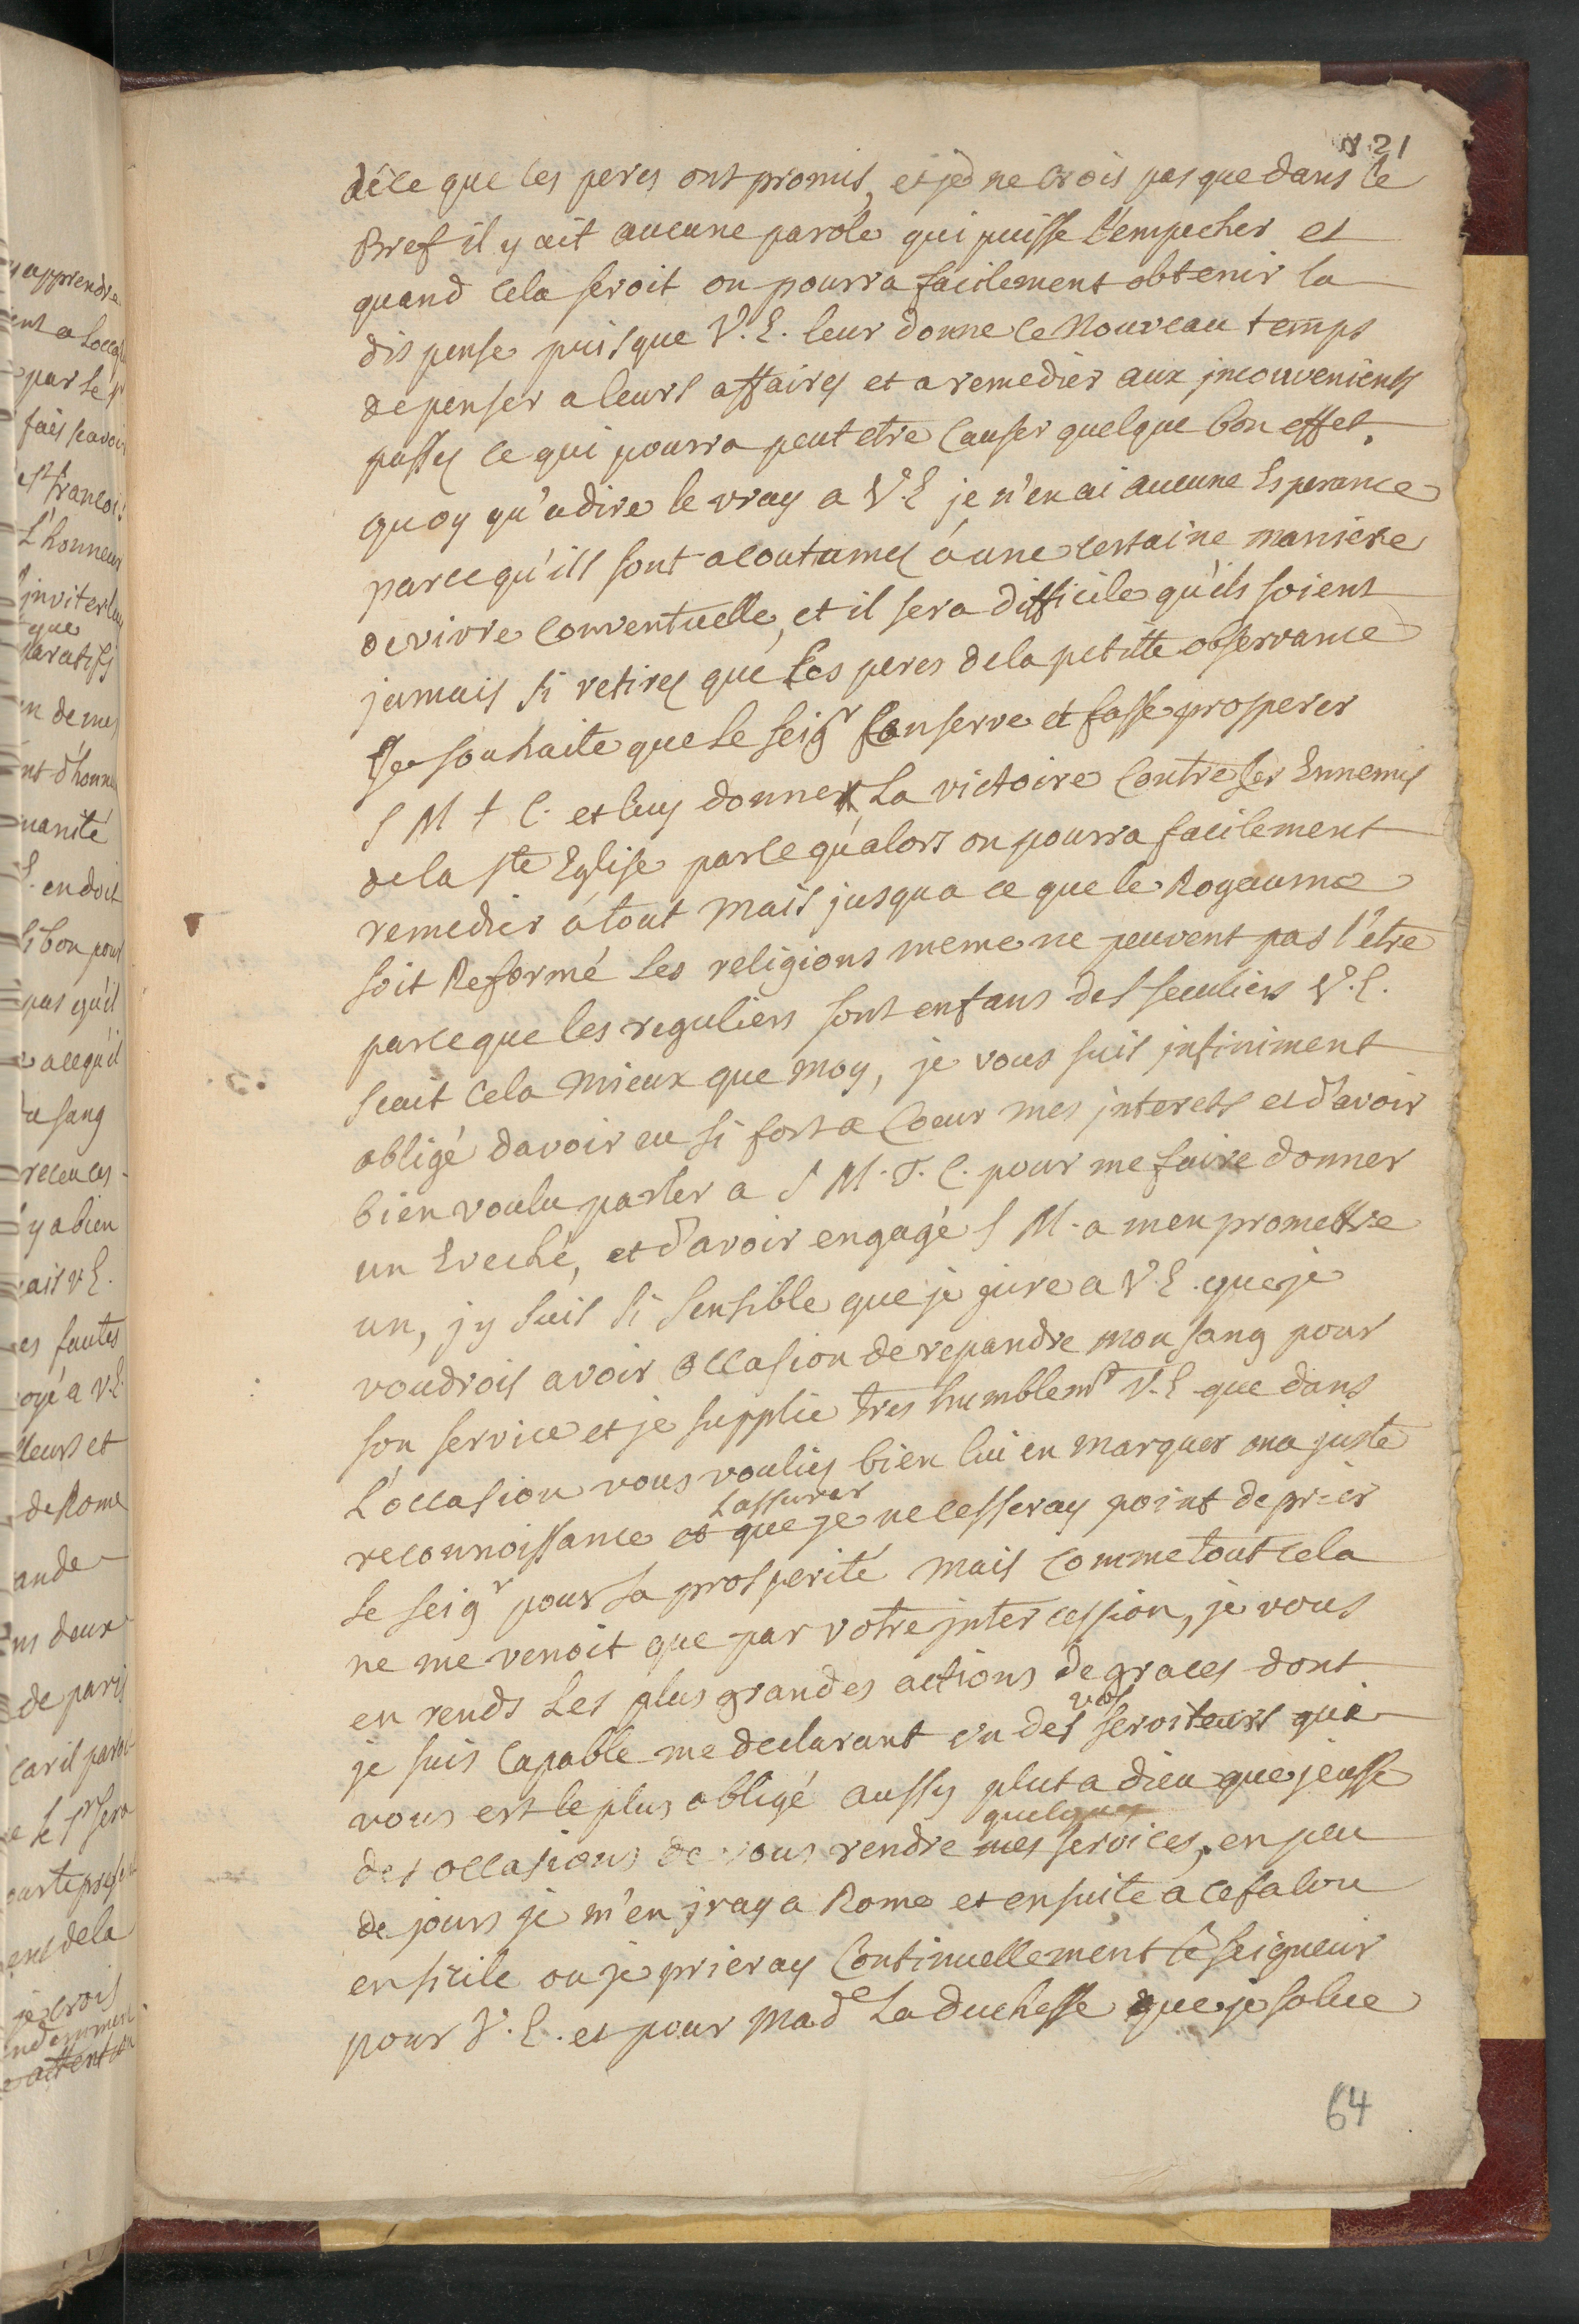 N. 21
de ce que les peres ont promis, et je ne crois pas que dans le
Bref il y ait aucune parole qui puisse l'empecher et
quand cela seroit on pourra facilement obtenir la
dispense puisque V. E. leur donne ce Nouveau temps
de penser a leurs affaires et a remedier aux jnconvenients
passes ce qui pourra peut etre causer quelque bon effet,
quoy qu'a dire le vray a V. E je n'en ai aucune Esperance
parce qu'ils sont acoutumes á une certaine maniere
de vivre conventuelle, et il sera difficile qu'ils soient
jamais si retires que Les peres de la petitte observance
Je souhaite que le seigr Conserve et fasse prosperer
S M t C. et luy donner La victoire Contre les Ennemis
de la ste Eglise parce qu'alors on pourra facilement
remedier a tout mais jusqua ce que le Royaume
soit Reformé Les religions meme ne peuvent pas l'etre
parce que les reguliers sont enfans des seculiers V. E.
scait cela mieux que moy, je vous suis jnfiniment
obligé davoir eu si fort a Coeur mes jnterets et d'avoir
bien voulu parler a S M. T. C. pour me faire donner
un Eveché, et d'avoir engagé S M. a men promettre
un, jy suis si sensible que je jure a V. E. que je
voudrois avoir occasion de repandre mon sang pour
son service et je supplie tres humblemt V. E que dans
L'occasion vous voulies bien lui en marquer ma juste
Lassurer
reconnoissance et que je ne cesseray point de prier
Le seigr pour sa prosperité mais comme tout cela
ne me venoit que par votre jntercession, je vous
en rends Les plus grandes actions de graces dont
vos
je suis capable me declarant un des serviteurs qui
vous est le plus obligé aussy plut a dieu que jeusse
quelques
des occasions de vous rendre mes services, en peu
de jours je m'en jray a Rome et ensuite a cefalu
en sicile ou je prieray Continuellement Le seigneur
pour V. E. et pour made La duchesse que je salue
64
y apprendre
par le sr
fais scavoir
est francois
L'honneur
jnviter
que
en de mes
E. en doit
si bon pour
pas qu'il
a ce qu'il
sang
y a bien
V E.
es fautes
a V. E.
leurs et
de Rome
deux
de paris
car il
de la
je crois